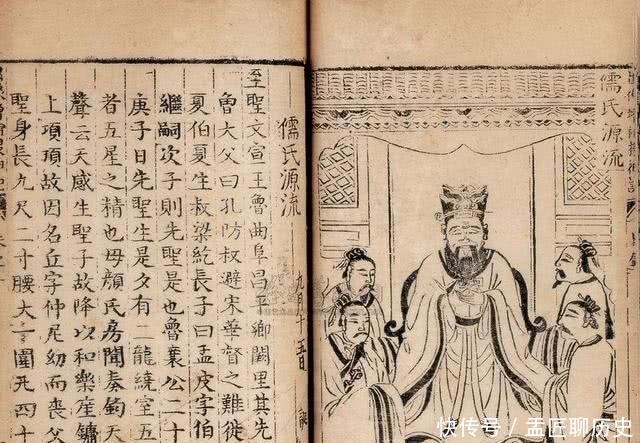 儒氏源流
儒氏源流
九月十五日
至聖文宣王魯曲阜昌平鄉闕里其先
魯大父曰孔防叔避宋華督之難徙
夏伯夏生叔梁紇長子曰孟皮字伯
繼嗣次子則先聖是也魯襄公二十
庚子日先聖生是夕有二龍繞室五
者五星之精也母顏氏房聞奏鈞天
聲云天感生聖子故降以和樂産鏞
上項項故因名丘字仲尼幼而喪父
聖身長九尺二寸腰大圍凡四十
快传号 / 孟匠聊历史